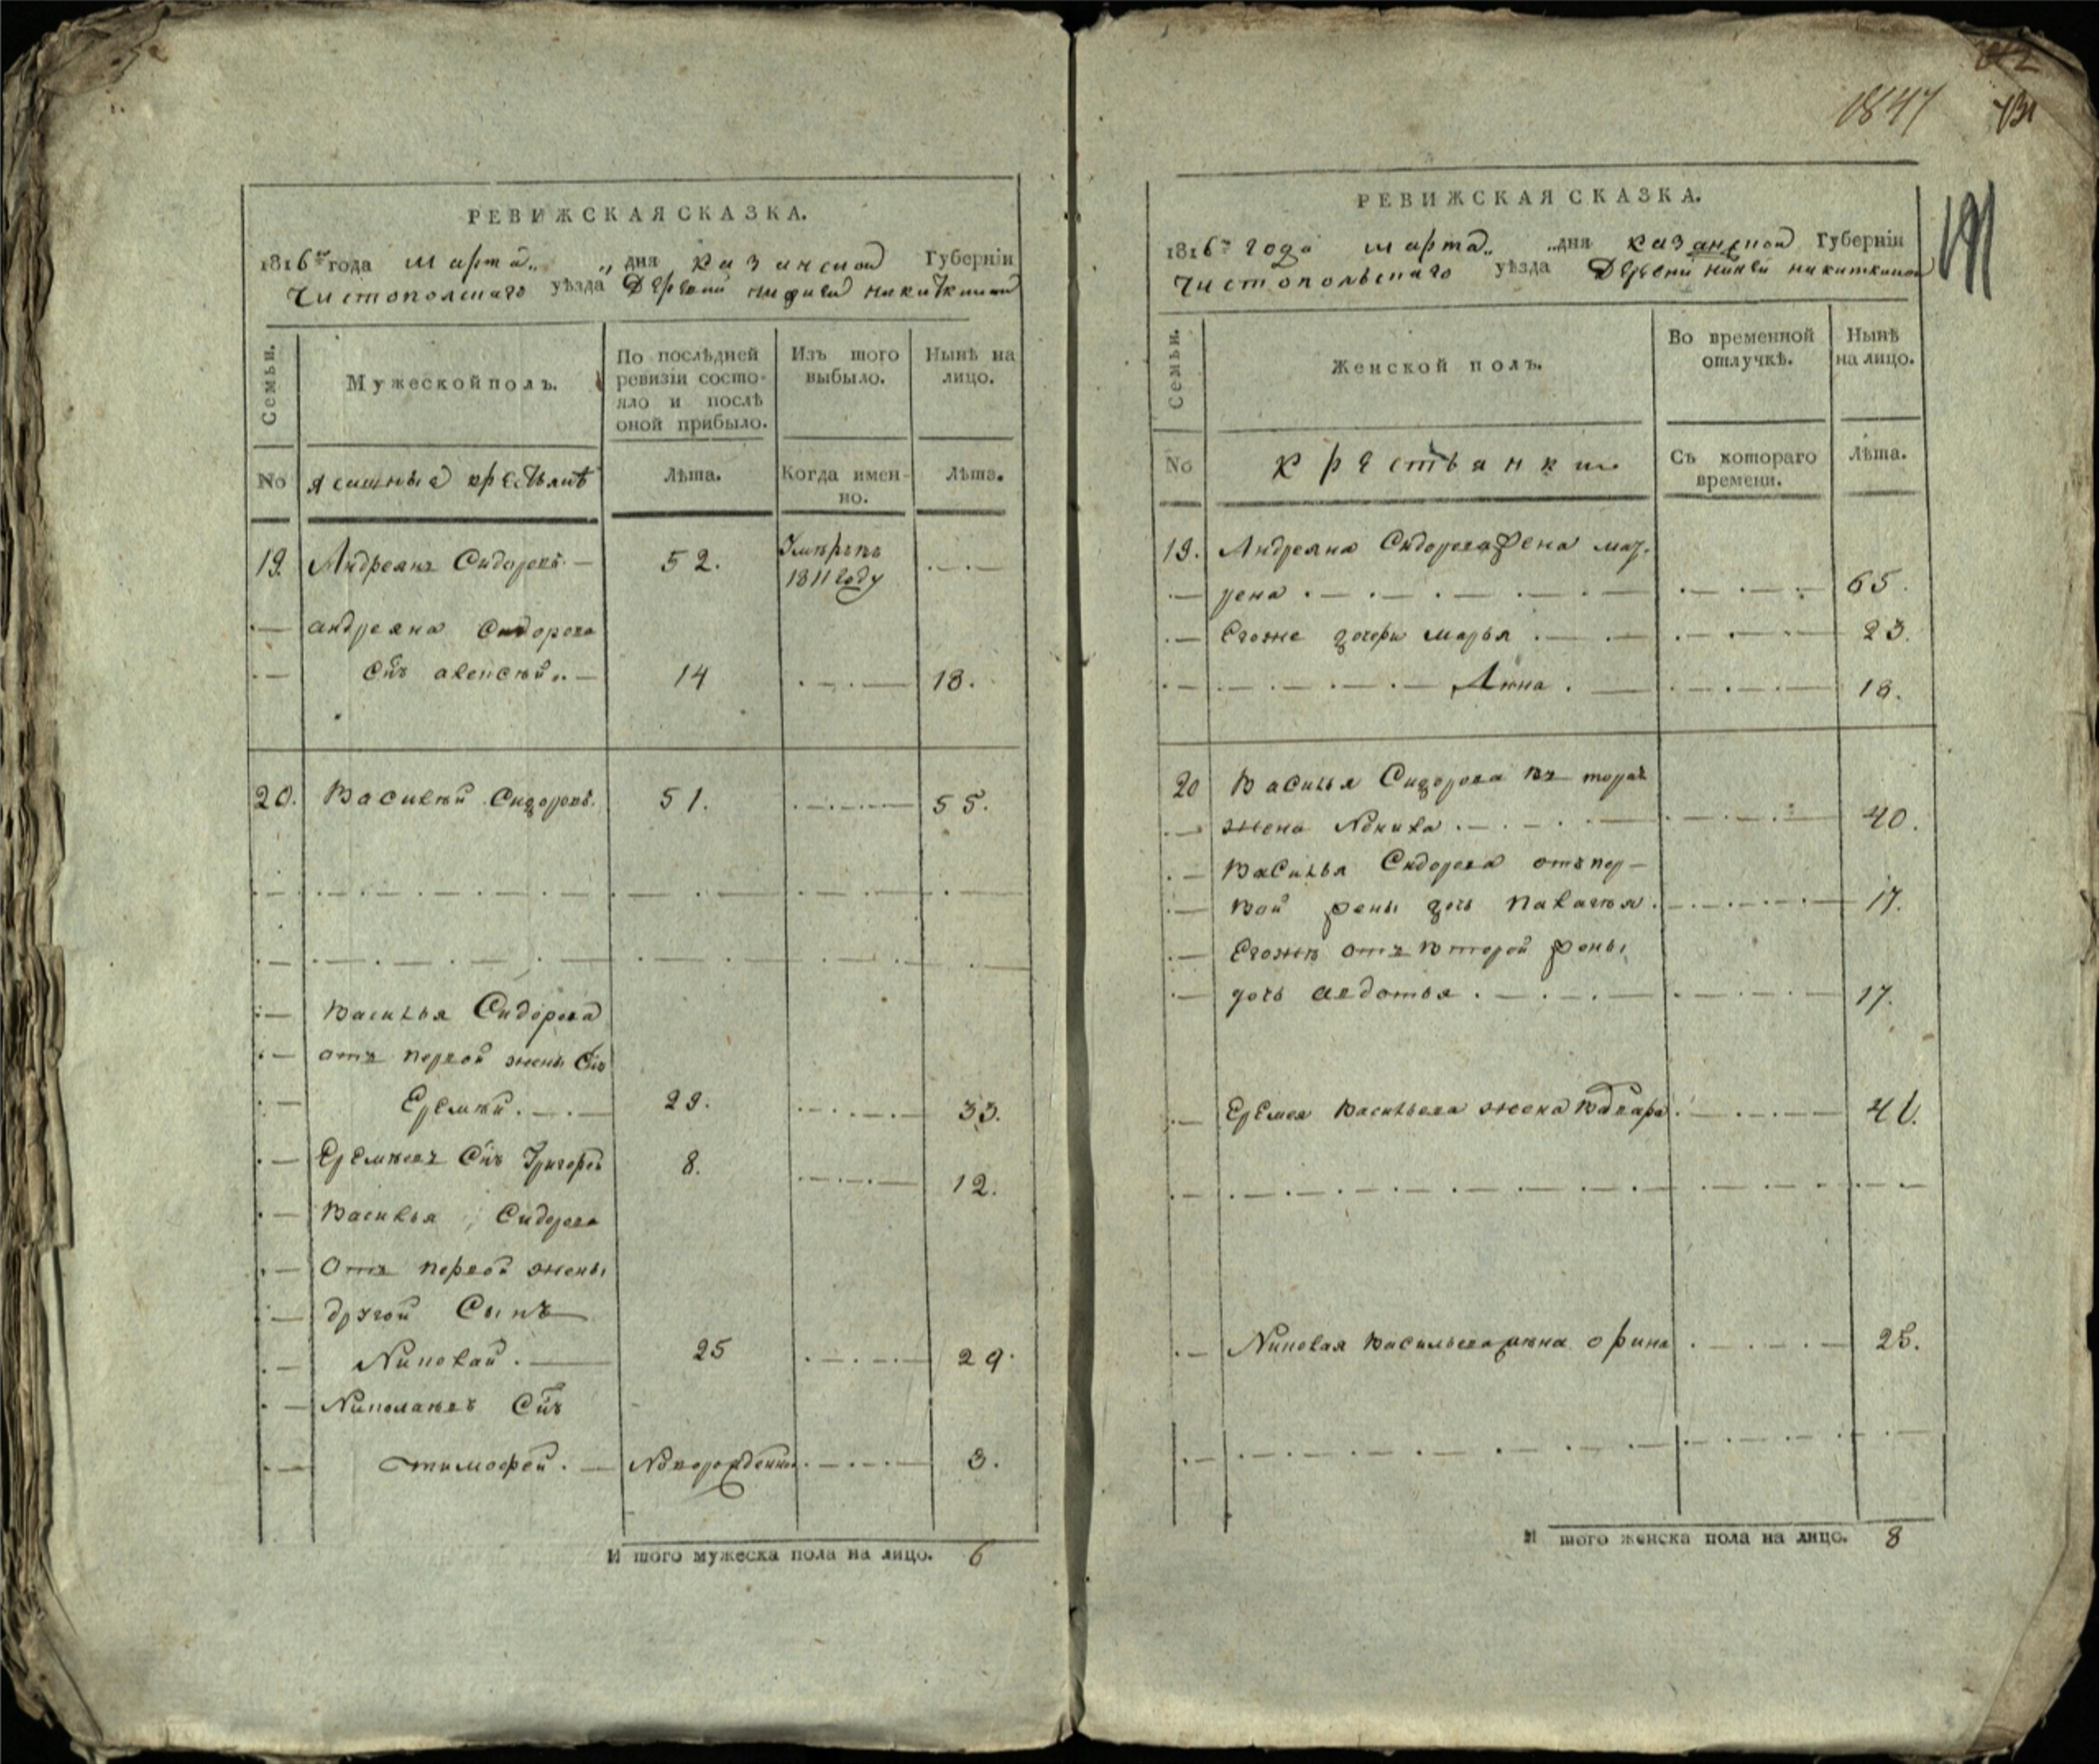 РЕВИЖСКАЯ СКАЗКА.
1816го года марта „ „ дня казанской Губерніи
Чистополскаго уѣзда Деревни нижней никиткиной
Семьи.
Мужеской полъ.
По послѣдней ревизіи состояло и послѣ оной прибыло.
Изъ того выбыло.
Нынѣ на лицо.
No
ясашныя крестьянѣ
Лѣта.
Когда именно.
Лѣта.
19. Андреянъ Сидоровъ 52. Умѣръвъ
1811 году
андреяна Сидорова
Снъ алексѣй 14 18.
20. Василѣй Сидоровъ. 51. 55.
Василья Сидорова
отъ первой жены Снъ
Еремѣй. 29. 33.
Еремѣевъ Снъ Григореи 8. 12.
Василья Сидорова
Отъ первой жены
другой Сынъ
Николай. 25 29.
Николаевъ Снъ
тимофей. Новорожденной 3.
И того мужеска пола на лицо. 6
1847
191
РЕВИЖСКАЯ СКАЗКА.
1816го года марта „ „ дня казанской Губерніи
Чистопольскаго уѣзда Деревни нижней никиткиной
Семьи.
Женской полъ.
Во временной отлучкѣ.
Нынѣ на лицо.
No
крестьянки
Съ котораго времени.
Лѣта.
19. Андреяна Сидорова жена мат-
рена 65.
Егоже дочери марья 23.
Анна 18.
20 Василья Сидорова въторая
жена Акилина 40.
Василья Сидорова отъпер-
вой жены дочь палагѣя 17.
Егожѣ отъ второй жены
дочь авдотья 17.
Еремея Васильева жена Варвара 41.
Николая Васильева жена орина 25.
И того женска пола на лицо. 8